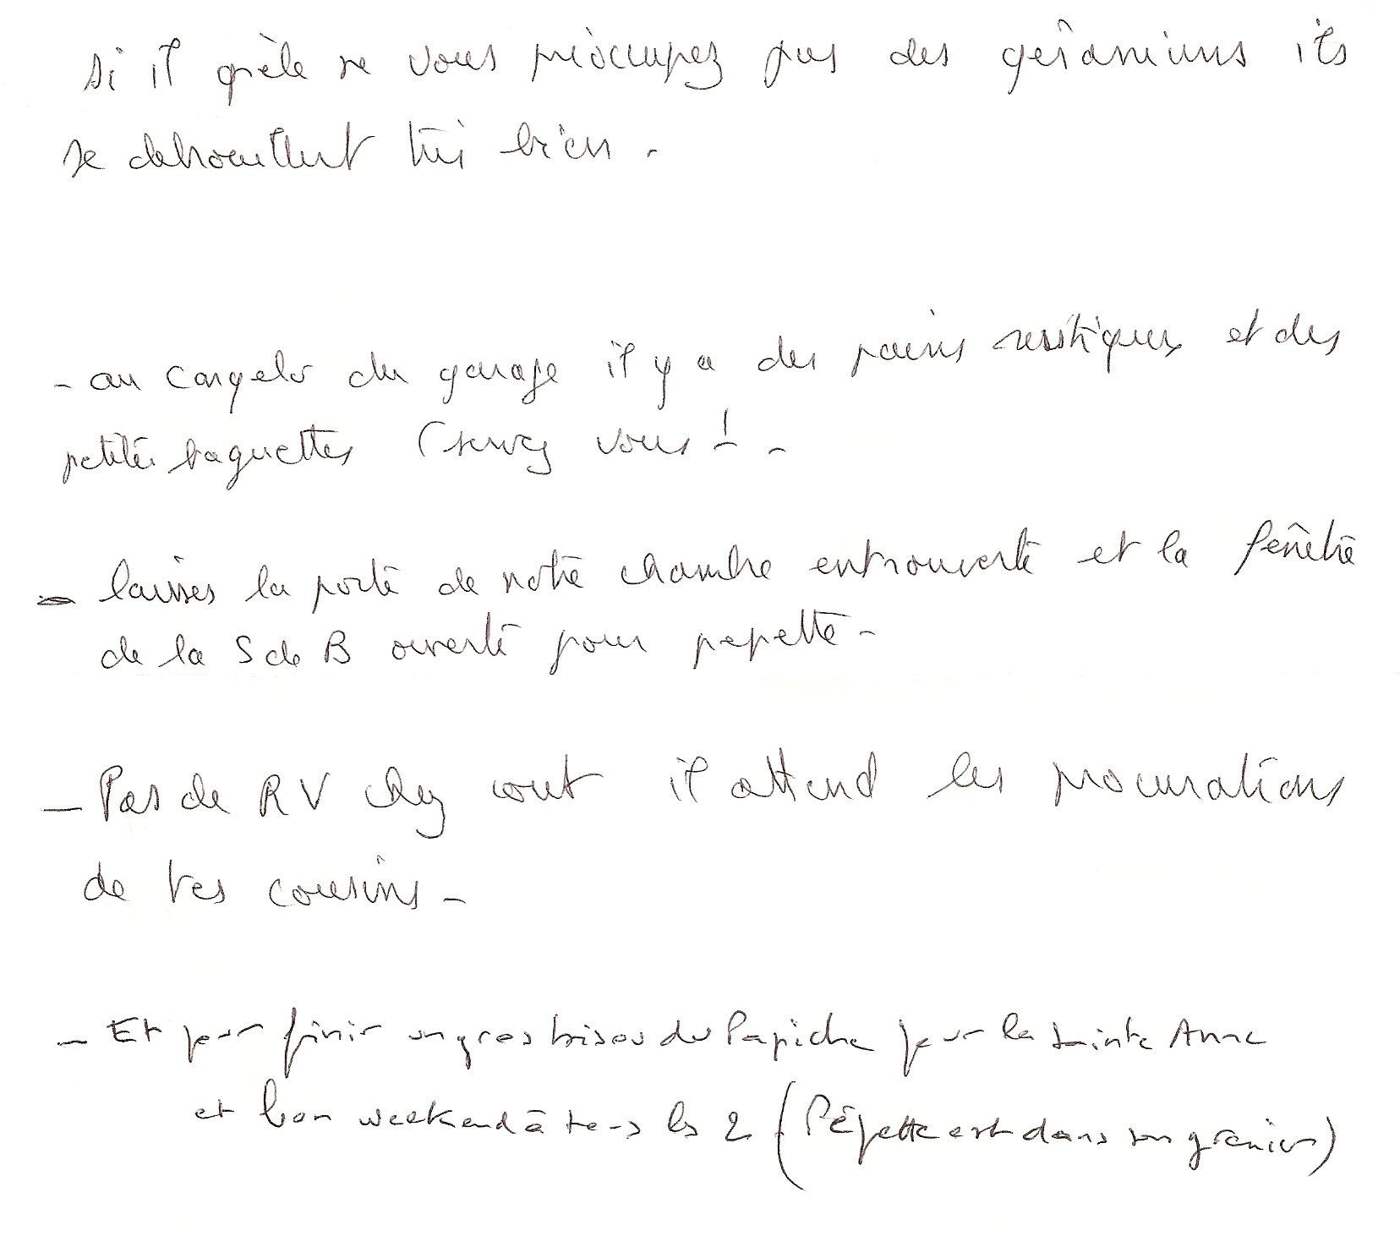 si il grèle ne vous préoccupez pas des géraniums ils
se debrouillent très bien.
- au congelo du garage il y a des pains rustiques et des
petites baguettes (servez vous! -
- laisses la porte de notre chambre entrouverte et la fenêtre
de la S de B ouverte pour pepette -
- Pas de RV chez il attend les procurations
de tes cousins -
- Et pour finir un gros bisou du Papiche pour la sainte Anne
et bon weekend à tous les 2 (Pépette est dans son grenier)